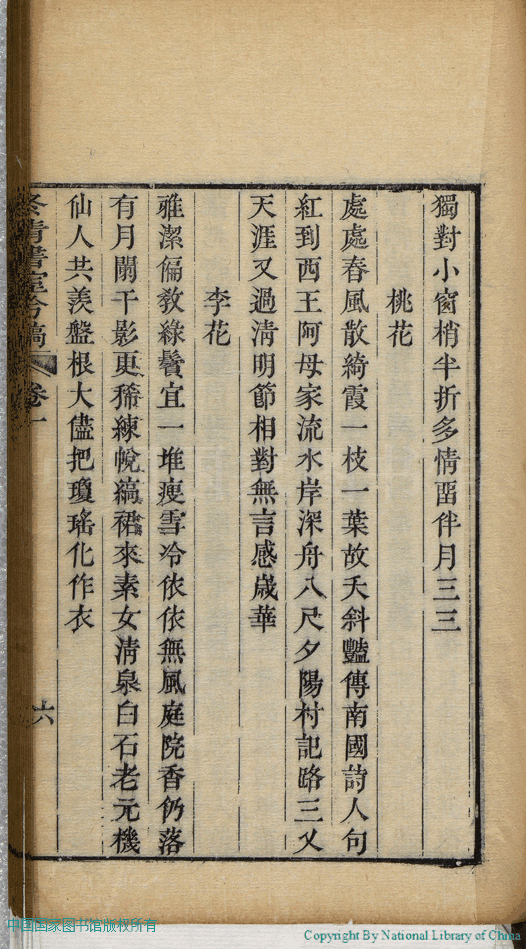 獨對小窗梢半折多情畱伴月三三
桃花
處處春風散綺霞一枝一葉故夭斜豔傳南國詩人句
紅到西王阿母家流水岸深舟八尺夕陽村記路三乂
天涯又過清明節相對無言感歲華
李花
雅潔偏教綠鬢宜一堆瘦雪冷依依無風庭院香仍落
有月闌干影更稀練帨縞裙來素女清泉白石老元機
仙人共羨盤根大儘把瓊瑤化作衣
冬青書室吟稿
卷一
六
中国国家图书馆版权所有
Copyright By National Library of China